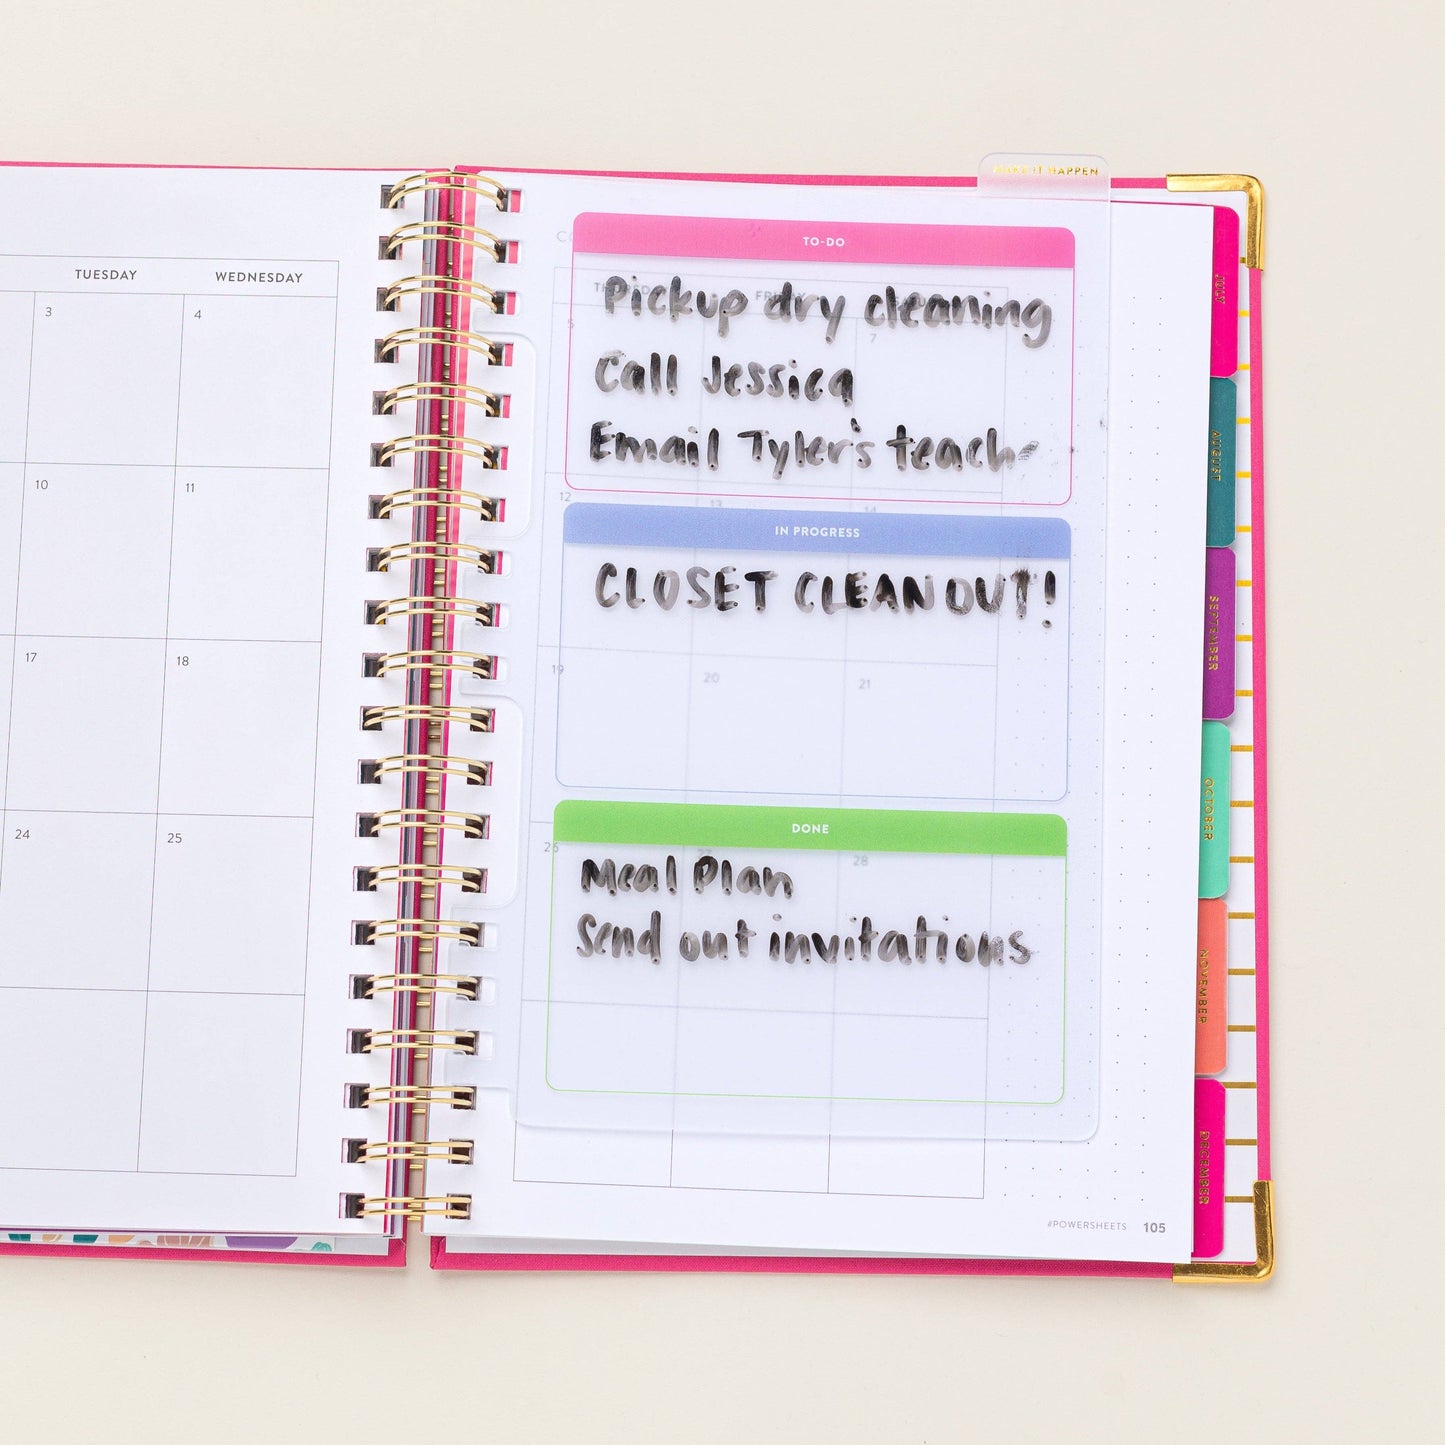 MAKE IT HAPPEN
TUESDAY WEDNESDAY
3 4
10 11
17 18
24 25
TO-DO
THURSDAY FRIDAY
5 7
Pickup dry cleaning
Call Jessica
Email Tyler's teach
12 13 14
IN PROGRESS
CLOSET CLEANOUT!
19 20 21
DONE
26 27 28
Meal Plan
Send out invitations
#POWERSHEETS 105
JULY
AUGUST
SEPTEMBER
OCTOBER
NOVEMBER
DECEMBER